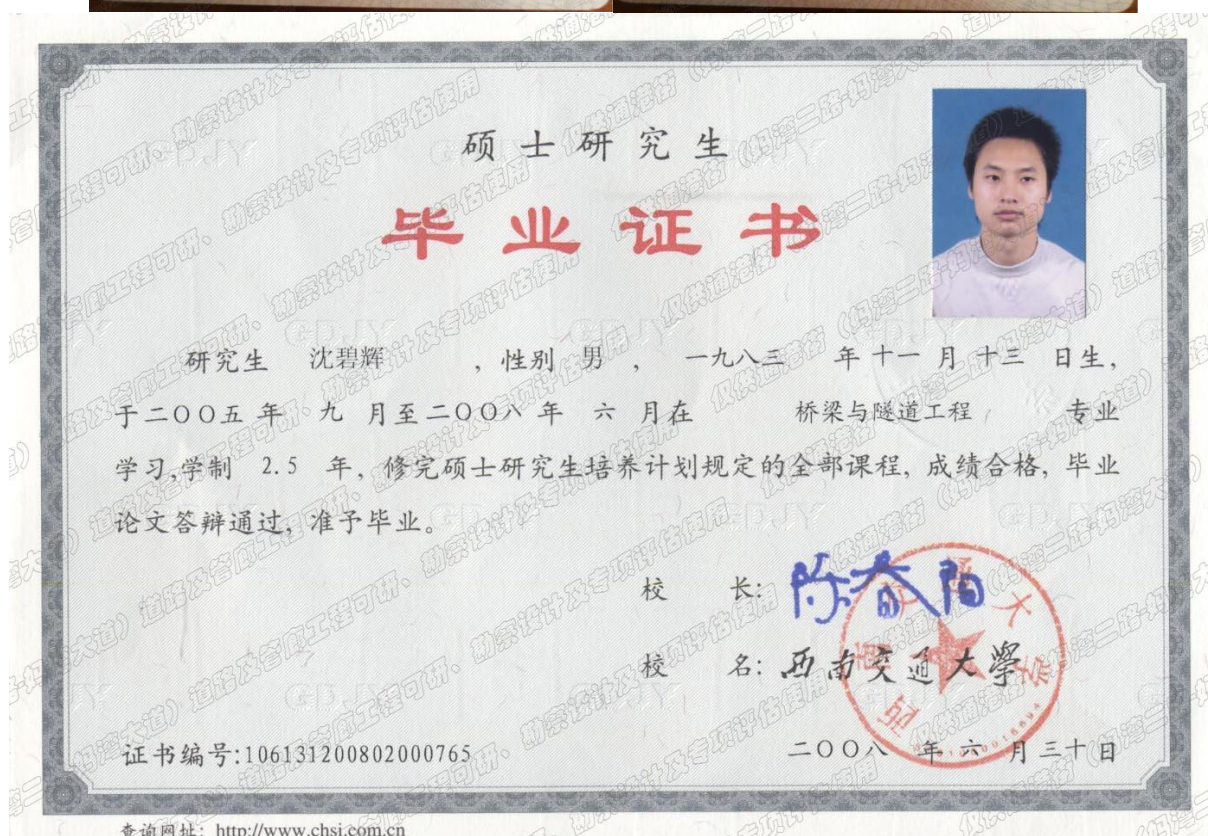 硕士研究生
毕业证书
研究生 沈碧辉 ，性别 男 ， 一九八三 年 十一 月 十三 日生，
于二〇〇五 年 九 月至二〇〇八 年 六 月在 桥梁与隧道工程 专业
学习,学制 2.5 年，修完硕士研究生培养计划规定的全部课程，成绩合格，毕业
论文答辩通过，准予毕业。
校 长: 陈春阳
校 名: 西南交通大學
西南交通大学
证书编号:106131200802000765
二〇〇八 年 六 月 三十 日
查询网址: http://www.chsi.com.cn
仅供通港街 (妈湾二路-妈湾大道) 道路及管廊工程可研、勘察设计及专项评估使用
GDJY